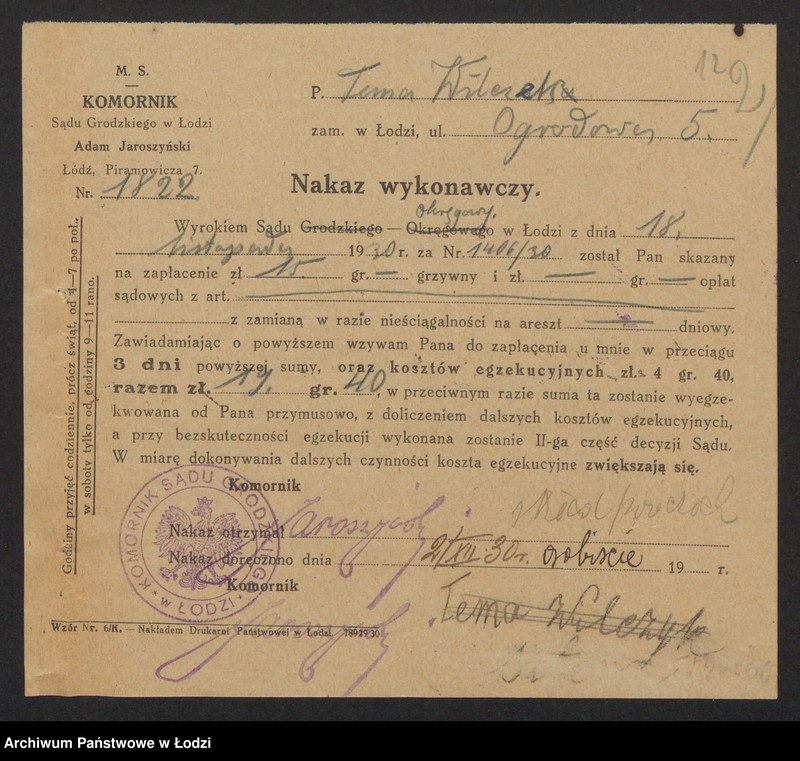 M. S.
KOMORNIK
Sądu Grodzkiego w Łodzi
Adam Jaroszyński
Łódź, Piramowicza 7.
Nr. 1822
129
P. Tema Wilczek
zam. w Łodzi, ul. Ogrodowa 5.
Nakaz wykonawczy.
okręgowy.
Wyrokiem Sądu Grodzkiego — Okręgowego w Łodzi z dnia 18.
listopada 1930 r. za Nr. 1406/30 został Pan skazany
na zapłacenie zł 15 gr. — grzywny i zł. — gr. — opłat
sądowych z art.
z zamianą w razie nieściągalności na areszt — dniowy.
Zawiadamiając o powyższem wzywam Pana do zapłaçenia u mnie w przeciągu
3 dni powyższej sumy, oraz kosztów egzekucyjnych zł. 4 gr. 40,
razem zł. 19. gr. 40, w przeciwnym razie suma ta zostanie wyegze-
kwowana od Pana przymusowo, z doliczeniem dalszych kosztów egzekucyjnych,
a przy bezskuteczności egzekucji wykonana zostanie II-ga część decyzji Sądu.
W miarę dokonywania dalszych czynności koszta egzekucyjne zwiększają się.
Komornik
Nakaz otrzymał
Nakaz doręczono dnia 2/XII 30 r. osobiście 19 r.
Komornik
Tema Wilczyk
KOMORNIK SĄDU GRODZKIEGO
w ŁODZI
Godziny przyjęć codziennie, prócz świąt, od 4—7 po poł.
w soboty tylko od godziny 9—11 rano.
Wzór Nr. 6/K. — Nakładem Drukarni Państwowej w Łodzi. 7892930
Archiwum Państwowe w Łodzi